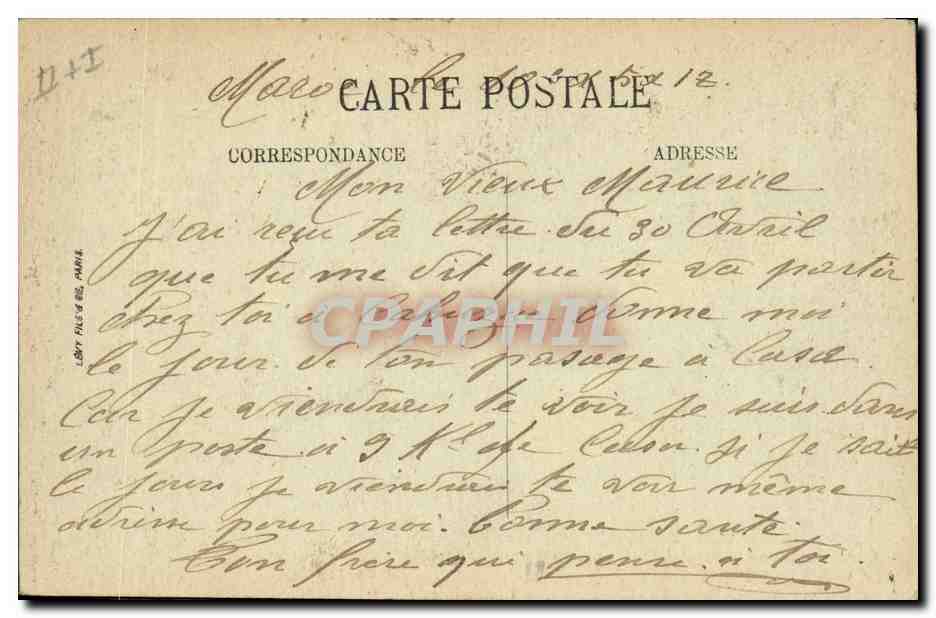 II + I
Maroc le
CARTE POSTALE
12.
CORRESPONDANCE
ADRESSE
Mon Vieux Maurice
J'ai reçu ta lettre du 30 Avril
que tu me dit que tu va partir
chez toi a donne moi
le jour de ton passage a Casa
Car je viendrais te voir je suis dans
un poste a 9 Kl de Casa si je sait
le jour je viendrais te voir même
adresse pour moi. Bonne santé.
Ton frère qui pense a toi.
LÉVY FILS & CIE, PARIS.
CPAPHIL